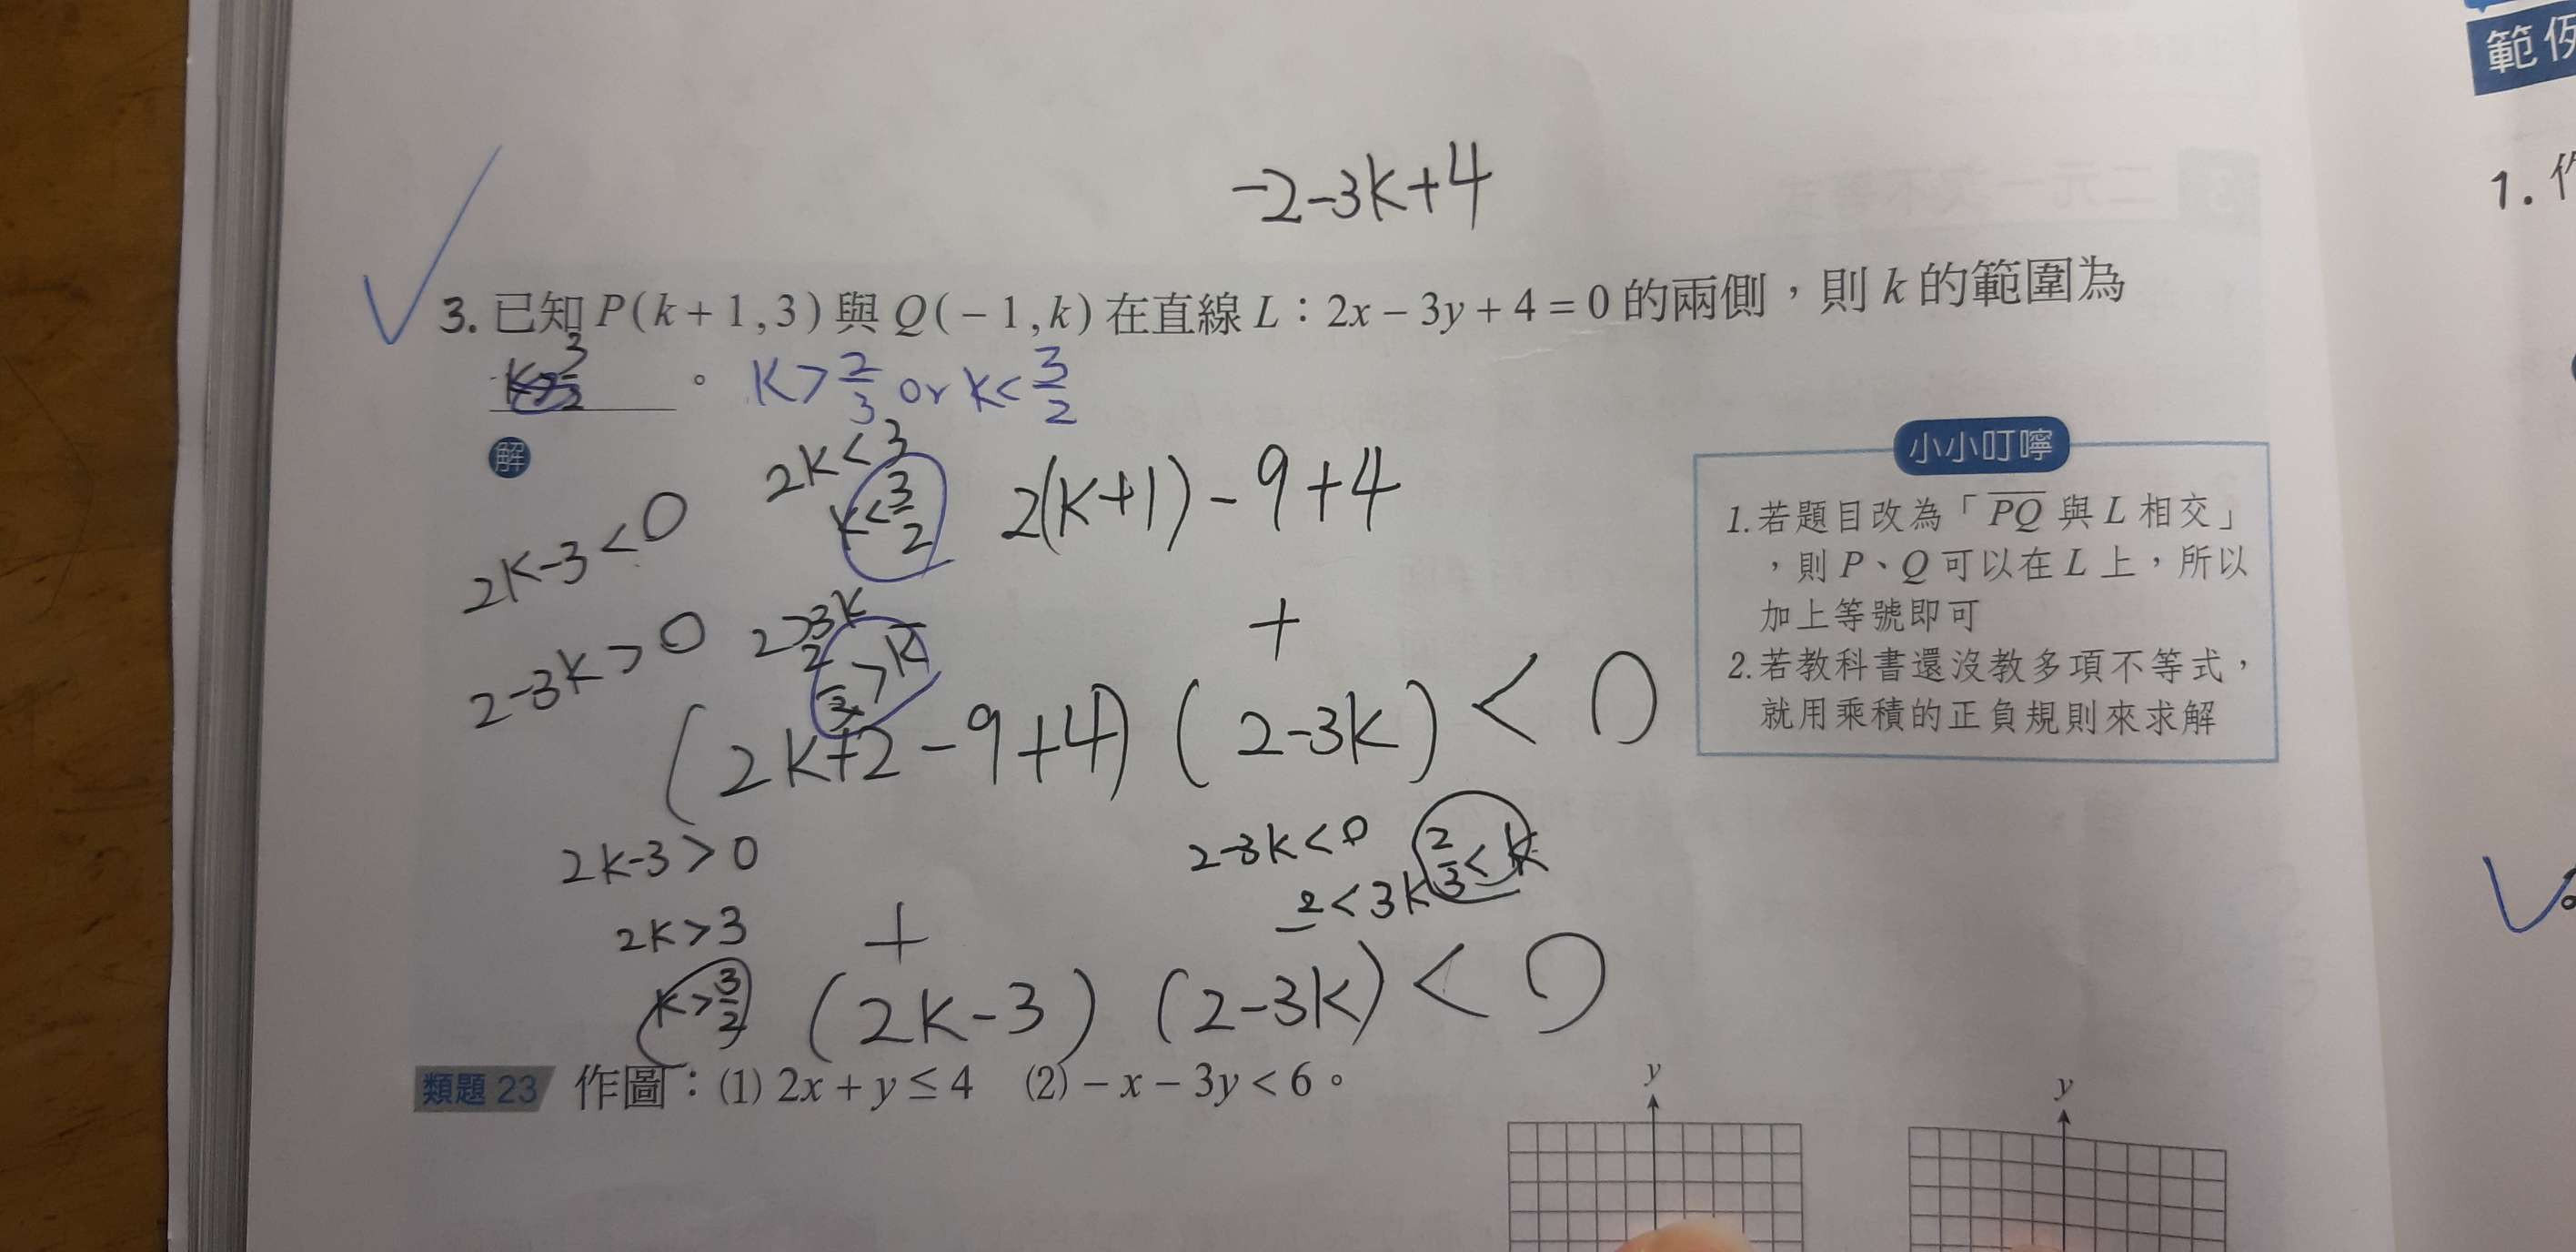 範例
1. 作
-2-3k+4
3. 已知 P(k+1,3) 與 Q(-1,k) 在直線 L：2x-3y+4=0 的兩側，則 k 的範圍為
。 k>2/3 or k<3/2
解
2k<3
k<3/2
2(k+1)-9+4
2k-3<0
2-3k>0
2>3k
+
(2k+2-9+4)(2-3k)<0
小小叮嚀
1.若題目改為「PQ 與 L 相交」
，則 P、Q 可以在 L 上，所以
加上等號即可
2.若教科書還沒教多項不等式，
就用乘積的正負規則來求解
2k-3>0
2-3k<0
2<3k
2/3<k
2k>3
k>3/2
+
(2k-3)(2-3k)<0
類題 23 作圖：(1) 2x+y≤4 (2) -x-3y<6。
y
y